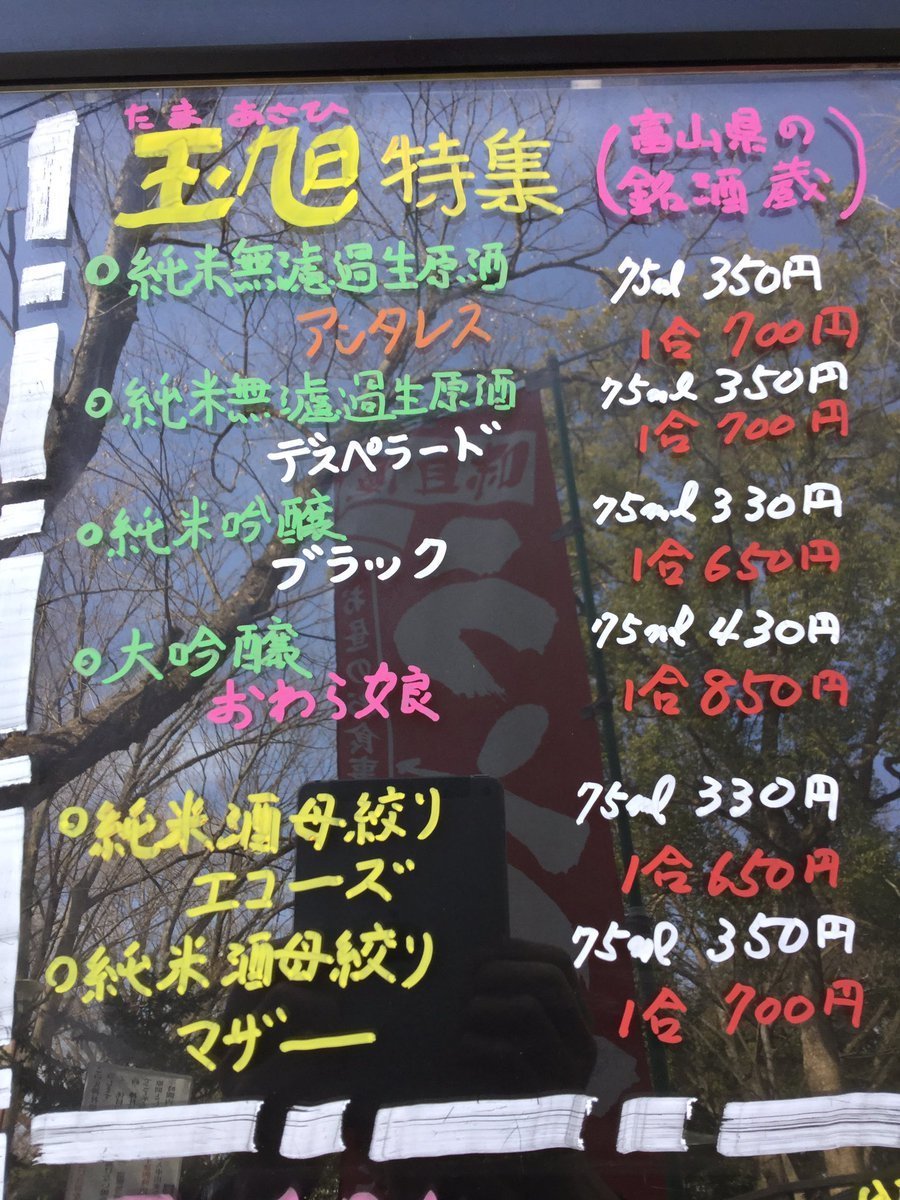 たま あさひ
玉旭 特集 (富山県の銘酒蔵)
○純米無濾過生原酒 75ml 350円
アンタレス 1合 700円
○純米無濾過生原酒 75ml 350円
デスペラード 1合 700円
○純米吟醸 75ml 330円
ブラック 1合 650円
○大吟醸 75ml 430円
おわら娘 1合 850円
○純米酒母絞り 75ml 330円
エコーズ 1合 650円
○純米酒母絞り 75ml 350円
マザー 1合 700円